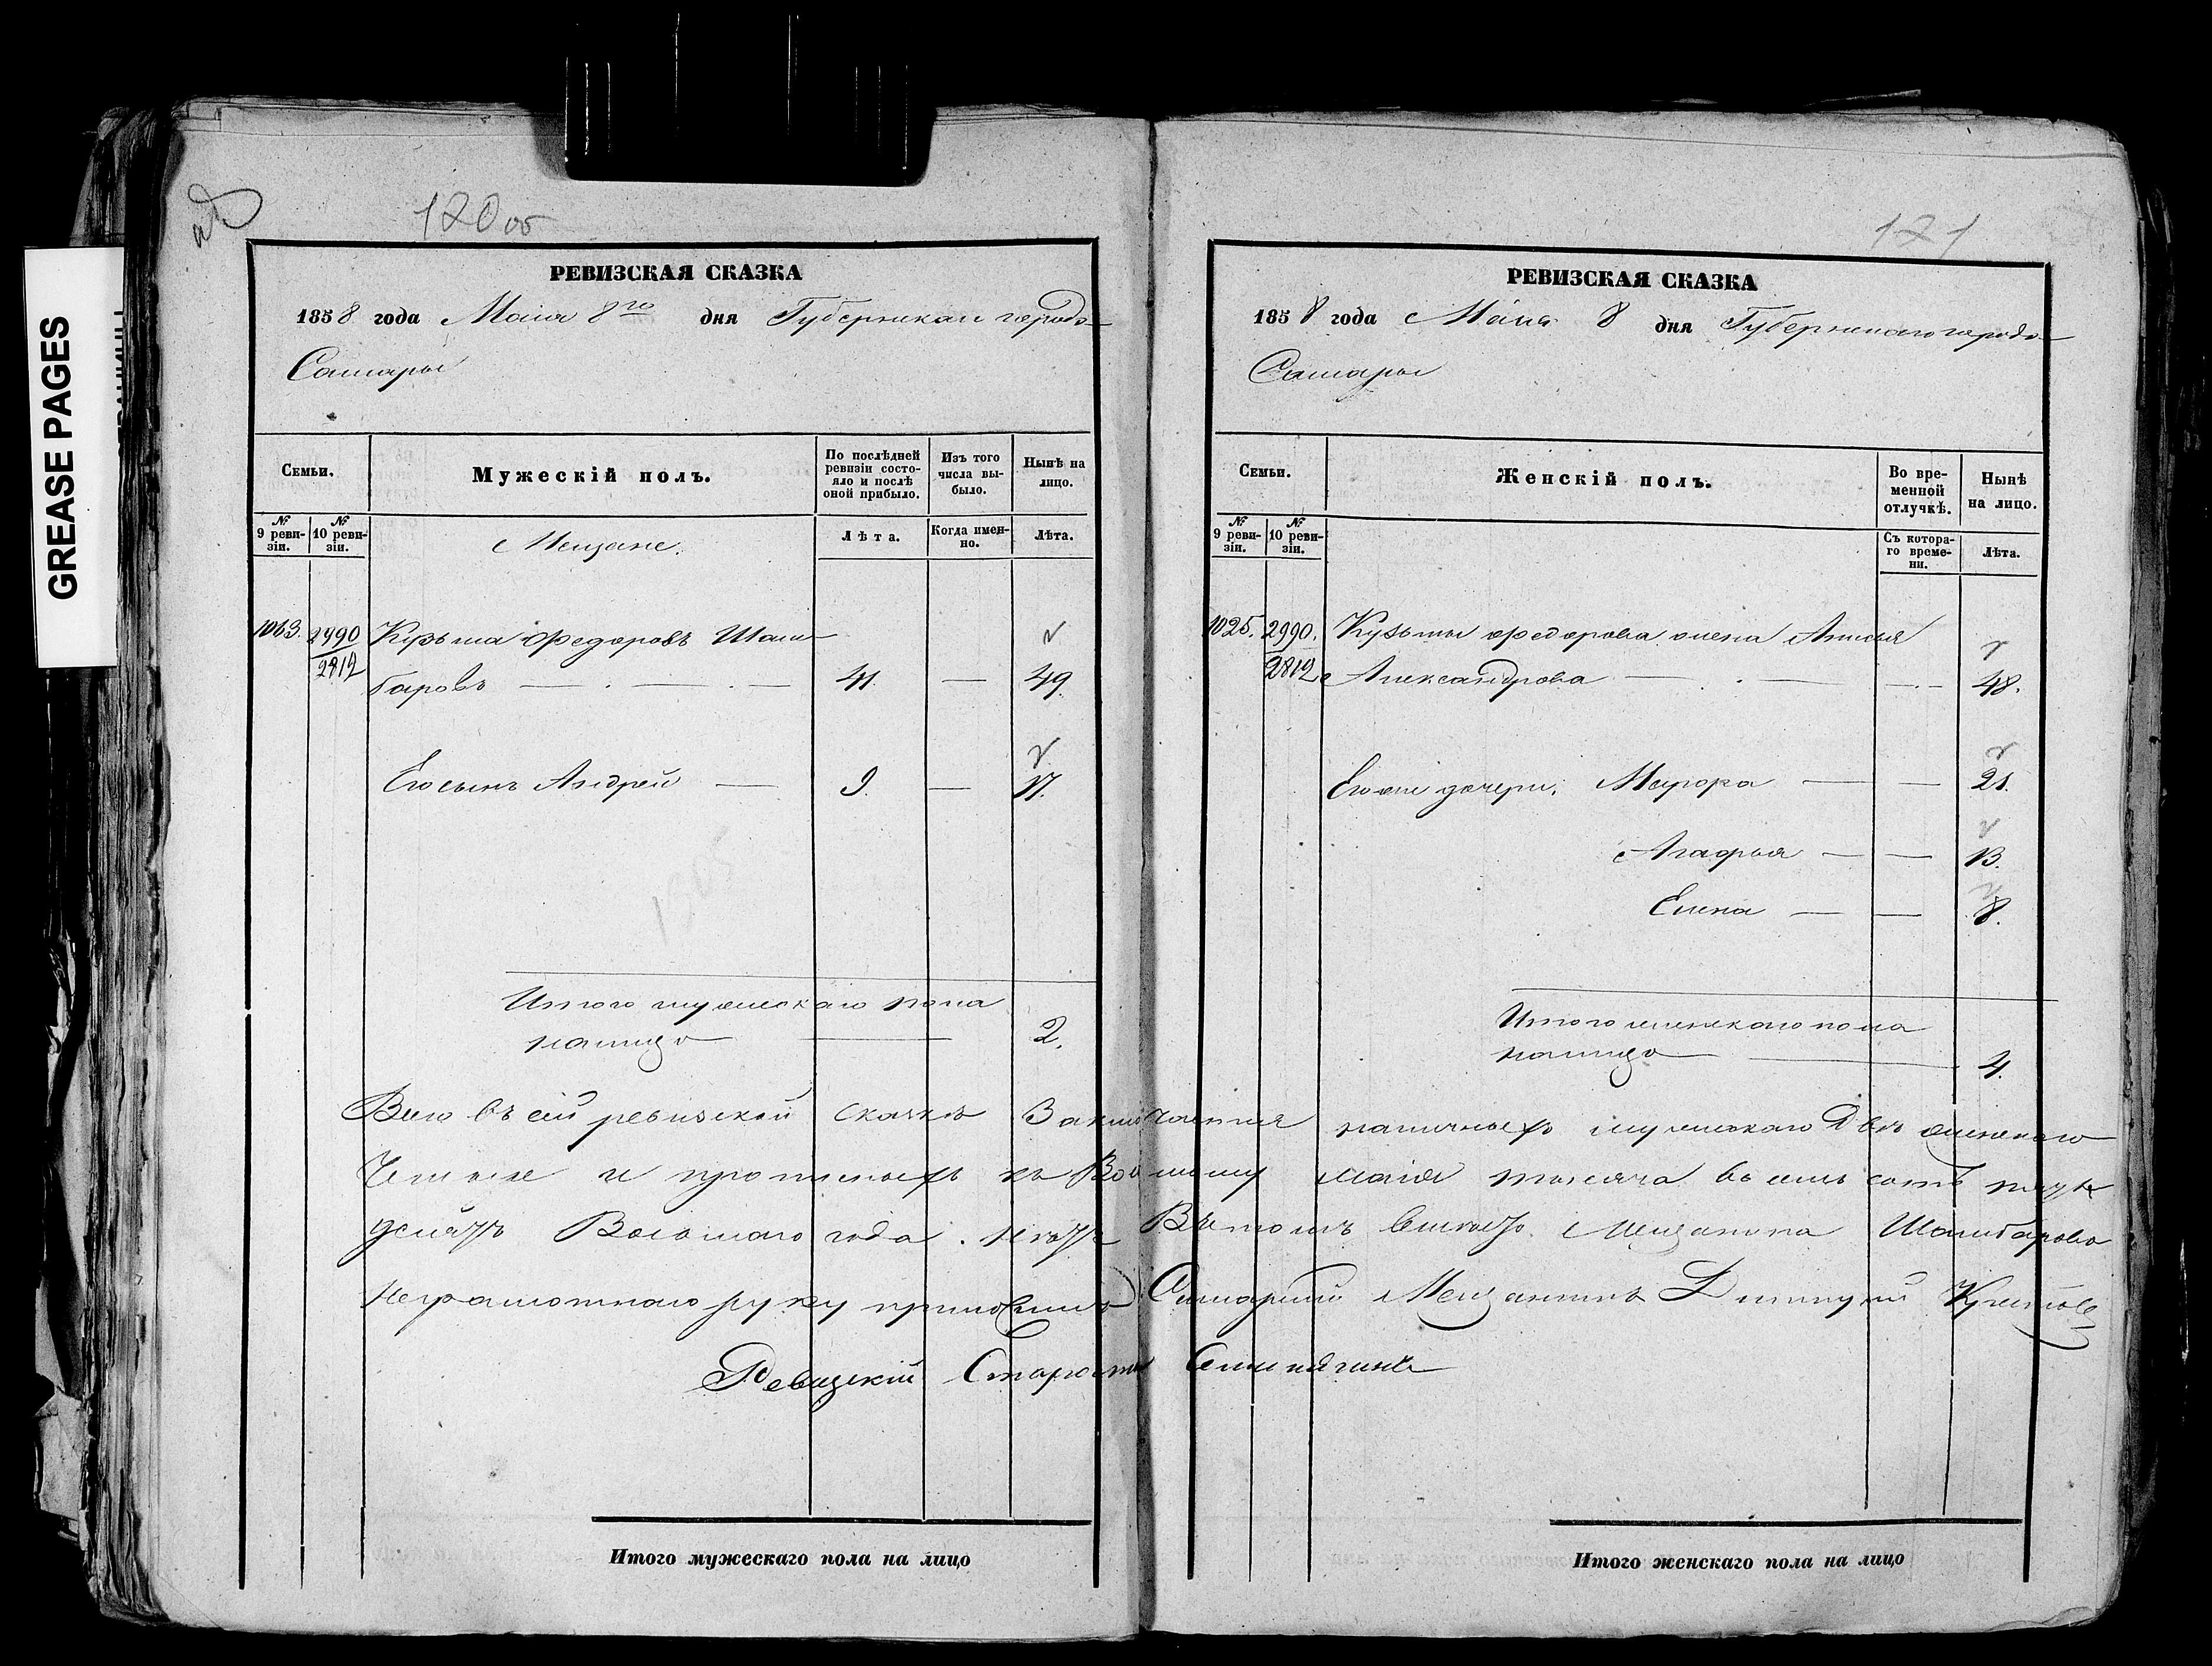 GREASE PAGES
120 об
РЕВИЗСКАЯ СКАЗКА
1858 года Мая 8го дня Губернскаго города
Самары
Семьи.
Мужескій полъ.
По послѣдней ревизіи состояло и послѣ оной прибыло.
Изъ того числа выбыло.
Нынѣ на лицо.
№ 9 ревизіи.
№ 10 ревизіи.
Мещане.
Лѣта.
Когда именно.
Лѣта.
1063. 2990 Кузьма Федоровъ Шам
2812 баровъ — 41. — 49.
Его сынъ Андрей — 9. — 17.
Итого мужескаго пола
налицо — 2.
121
РЕВИЗСКАЯ СКАЗКА
1858 года Мая 8 дня Губернскаго города
Самары
Семьи.
Женскій полъ.
Во временной отлучкѣ.
Нынѣ на лицо.
№ 9 ревизіи.
№ 10 ревизіи.
Съ котораго времени.
Лѣта.
1025. 2990. Кузьмы Федорова жена Анисья
2812 Александрова — — 48.
Его же дочери: Мавра — — 21.
Агафья — — 13.
Елена — — 8.
Итого женскаго пола
налицо — 4.
Всего въ сей ревизской сказкѣ Заключается наличныхъ мужескаго Два женскаго
Четыре и прописныхъ къ Восьмому мая тысяча восемь сотъ пять
десятъ Восьмаго года нѣтъ Вѣтомъ вместо Мещанина Шамбарова
Неграмотнаго руку приложилъ Самарскій Мещанинъ Дмитрий
Ревизскій Староста
Итого мужескаго пола на лицо
Итого женскаго пола на лицо